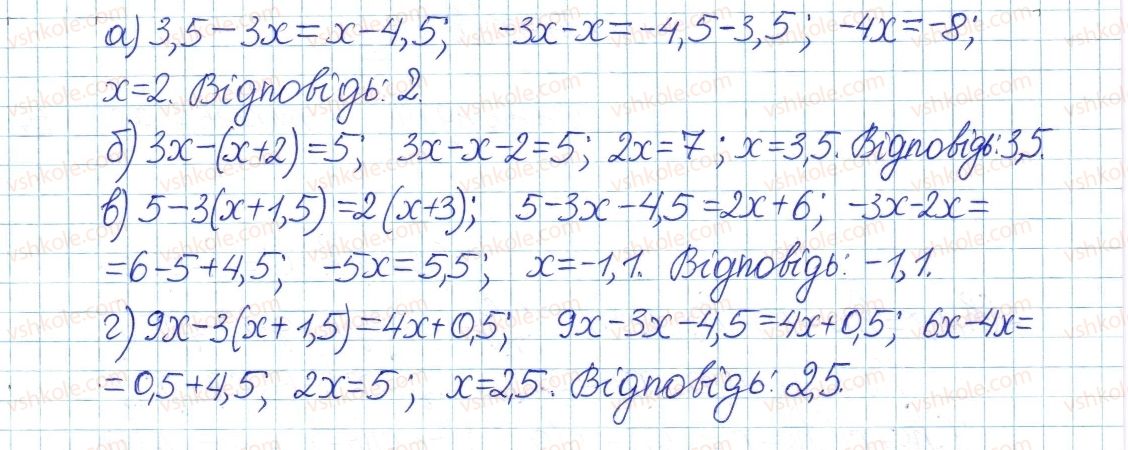 а) 3,5-3x=x-4,5; -3x-x=-4,5-3,5; -4x=-8;
x=2. Відповідь: 2.
б) 3x-(x+2)=5; 3x-x-2=5; 2x=7; x=3,5. Відповідь: 3,5.
в) 5-3(x+1,5)=2(x+3); 5-3x-4,5=2x+6; -3x-2x=
=6-5+4,5; -5x=5,5; x=-1,1. Відповідь: -1,1.
г) 9x-3(x+1,5)=4x+0,5; 9x-3x-4,5=4x+0,5; 6x-4x=
=0,5+4,5; 2x=5; x=2,5. Відповідь: 2,5.